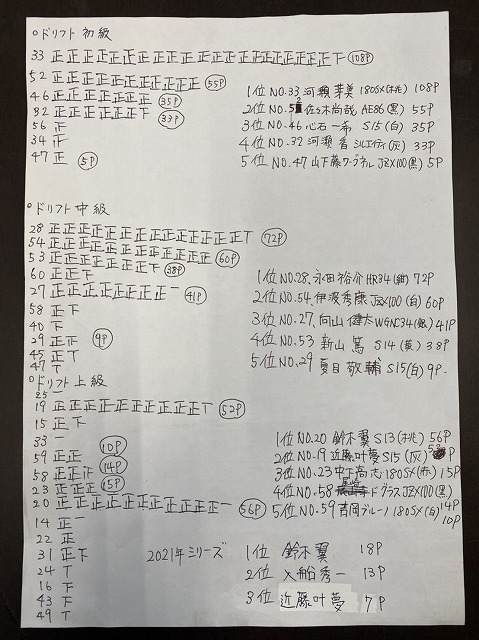 ○ドリフト初級
33 正正正正正正正正正正正正正正正正正正正正正下 108P
52 正正正正正正正正正正正 55P
46 正正正正正正正 35P
32 正正正正正正下 33P
56 正
34 正
47 正 5P
1位 NO.33 河瀬芽美 180SX(桃) 108P
2位 NO.52 佐々木尚哉 AE86(黒) 55P
3位 NO.46 心石一希 S15(白) 35P
4位 NO.32 河瀬香 シルエイティ(灰) 33P
5位 NO.47 山下藤ワーグネル JZX100(黒) 5P
○ドリフト中級
28 正正正正正正正正正正正正正正T 72P
54 正正正正正正正正正正正正 60P
53 正正正正正正正下 38P
60 正正下
27 正正正正正正正正一 41P
58 正下
40 下
29 正正 9P
45 正T
47 T
1位 NO.28. 永田裕介 HR34(紺) 72P
2位 NO.54. 伊波秀康 JZX100(白) 60P
3位 NO.27. 向山健太 WGNC34(銀) 41P
4位 NO.53 新山篤 S14(黄) 38P
5位 NO.29 夏目敬輔 S15(白) 9P.
○ドリフト上級
25 一
19 正正正正正正正正正正T 52P
15 正下
33 一
59 正正 10P
58 正正正 14P
23 正正正 15P
20 正正正正正正正正正正正一 56P
14 正一
22 正
31 正下
24 T
16 下
43 下
49 T
1位 NO.20 鈴木翼 S13(桃) 56P
2位 NO.19 近藤叶夢 S15(灰) 52P
3位 NO.23 中下高志 180SX(赤) 15P
4位 NO.58 ドグラス JZX100(黒) 14P
5位 NO.59 吉岡ブルーノ 180SX(白) 10P
2021年シリーズ
1位 鈴木翼 18P
2位 入船秀一 13P
3位 近藤叶夢 7P